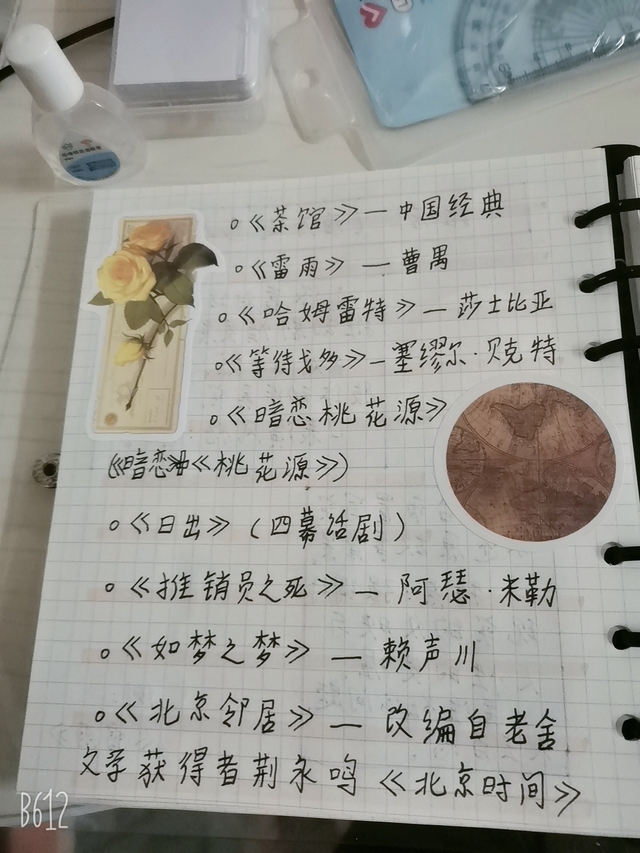 。《茶馆》—中国经典
。《雷雨》—曹禺
。《哈姆雷特》—莎士比亚
。《等待戈多》—塞缪尔·贝克特
。《暗恋桃花源》
(《暗恋》+《桃花源》)
。《日出》(四幕话剧)
。《推销员之死》—阿瑟·米勒
。《如梦之梦》—赖声川
。《北京邻居》—改编自老舍
文学获得者荆永鸣《北京时间》
B612